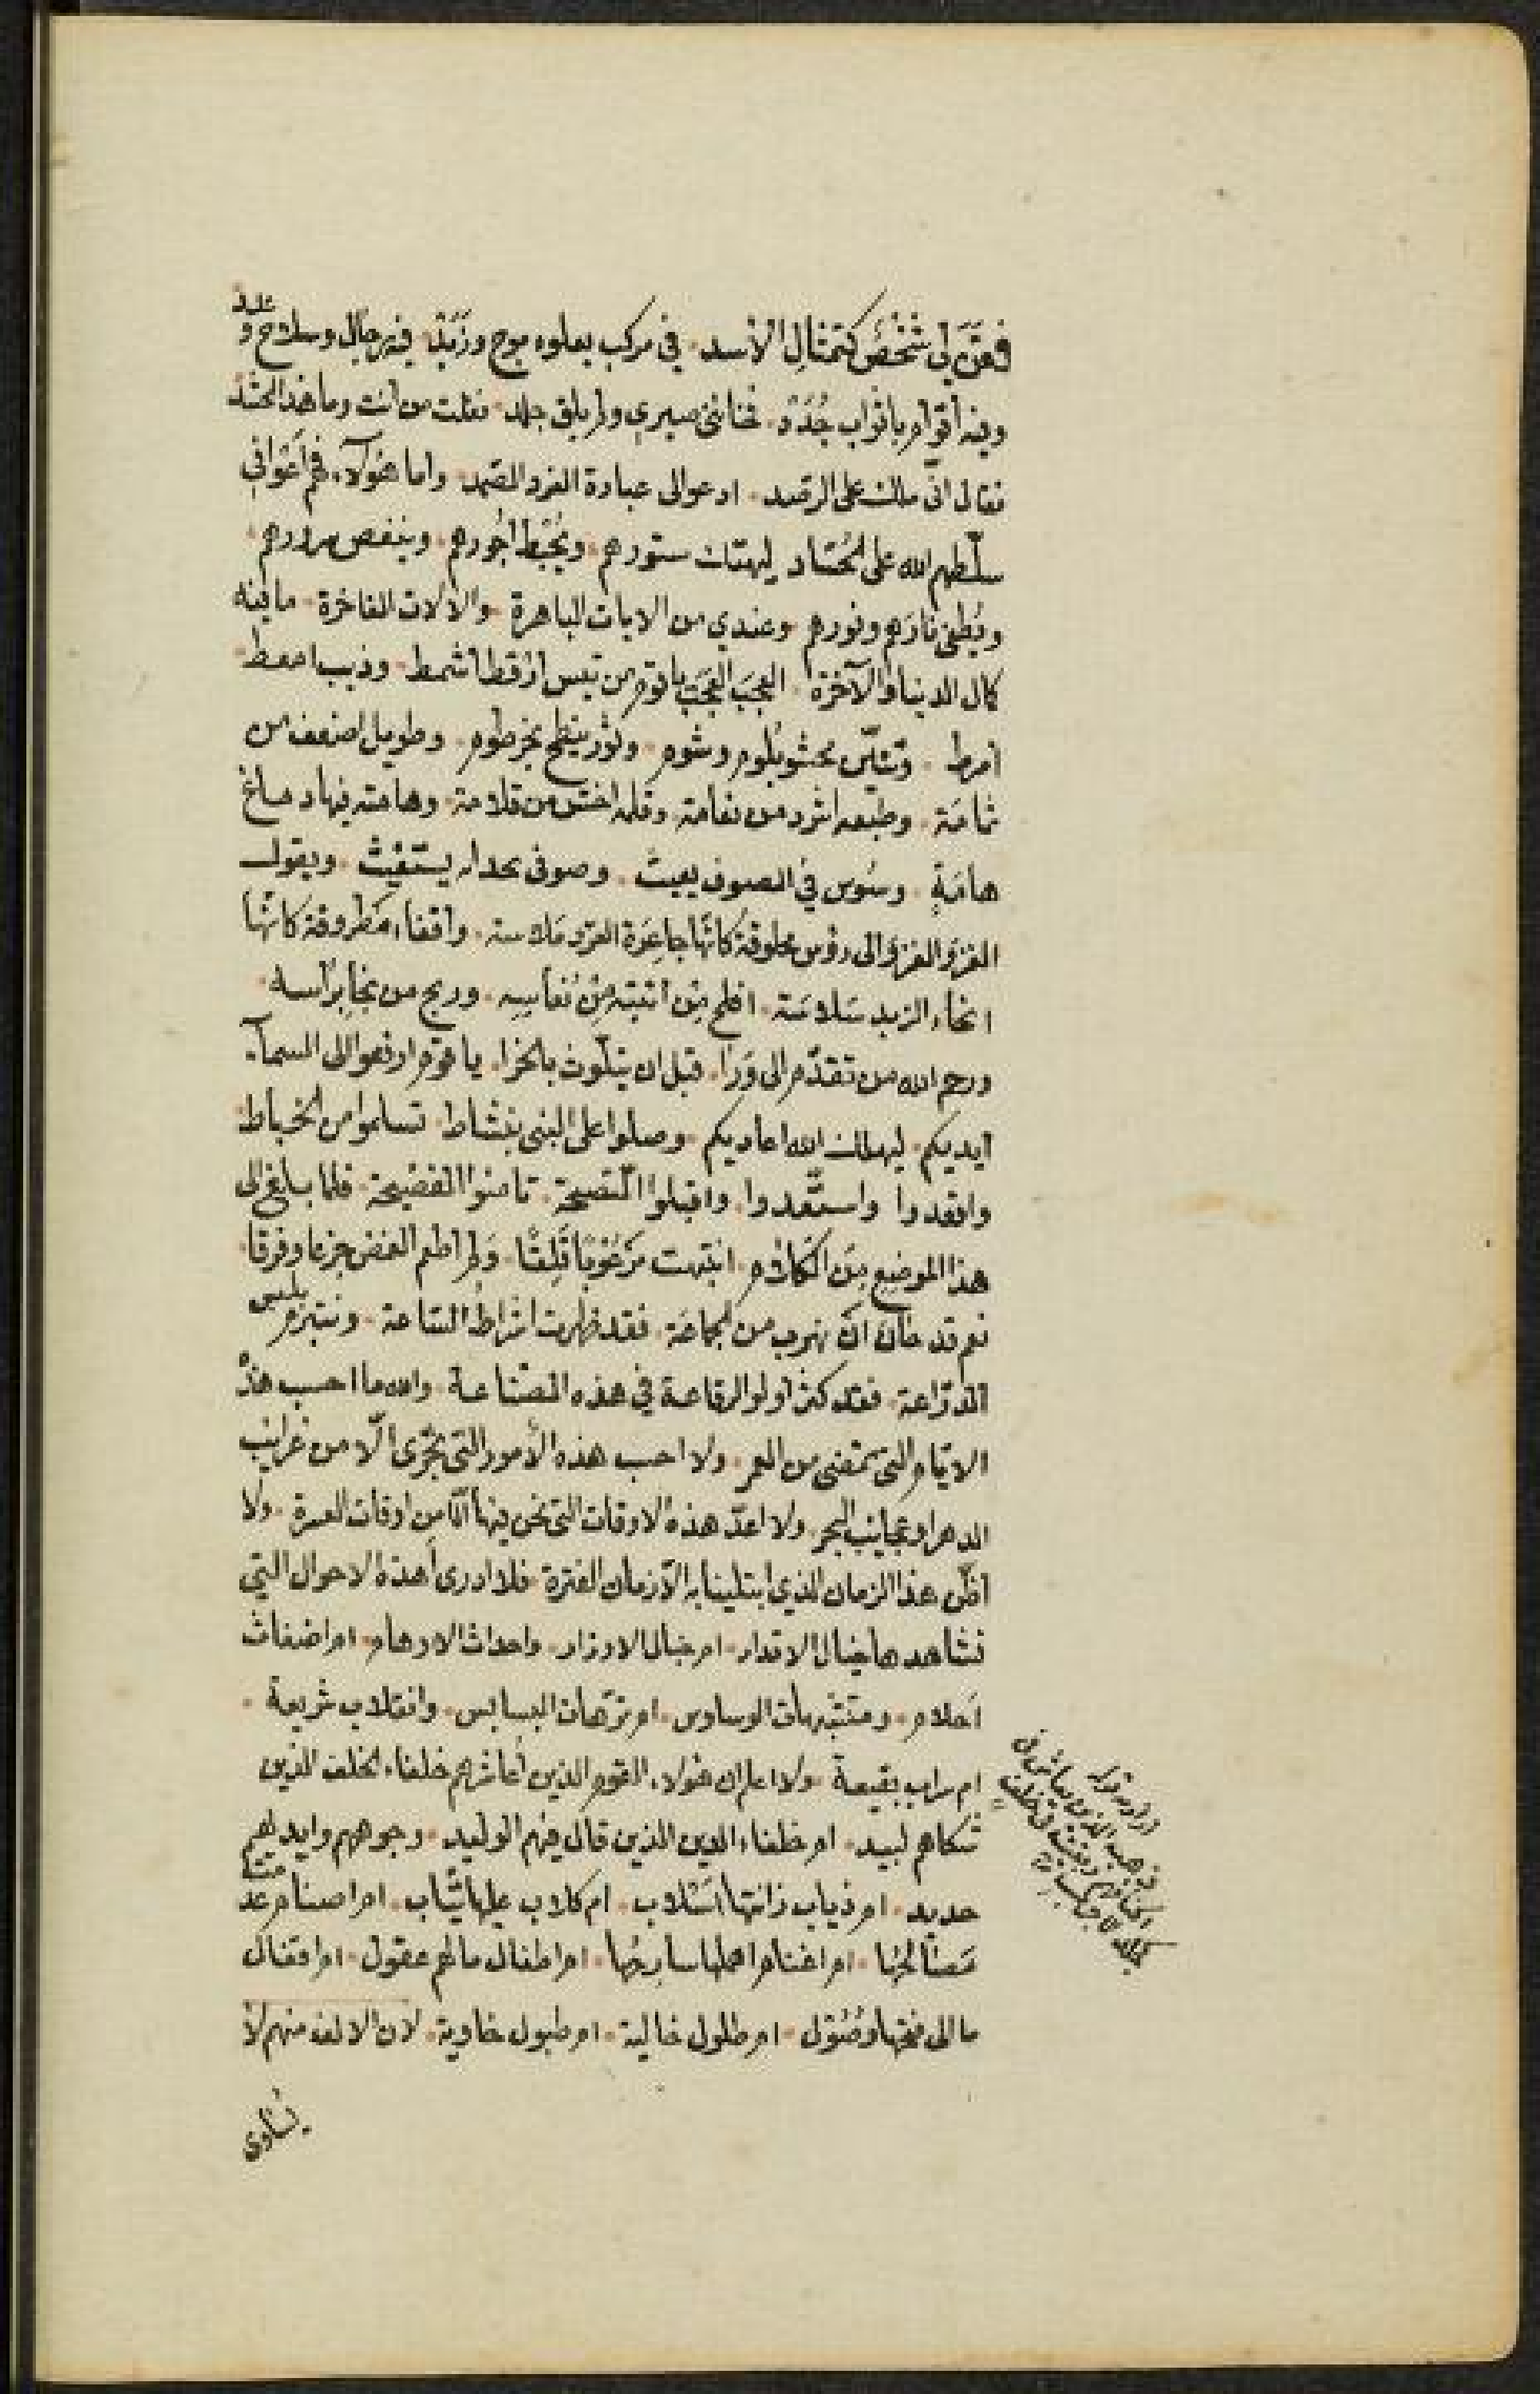 فعنّ لي شخص كتمثال الأسد في مركب يعلوه موج وزبد فيه رجال وسلاح و عدد
وفيه أقوام باثواب جُدَد فخانني صبري ولم يبق جلد فقلت من انت وما هذا الحشد
فقال انّي ملك على الرصد ادعوا لى عبادة الفرد الصمد واما هؤلآء فهم أعواني
سلّطهم الله على الحُسّاد ليهتك ستورهم ويُحبط أجورهم وينغص سرورهم
ويُطفى نارهم ونورهم وعندي من الايات الباهرة والالات الفاخرة ما فيه
كمال الدنيا والآخرة العجب العجب يا قوم من تيس ارقط اشمط وذيب امعط
أمرط وتنّين محشو بلوم وشوم وثور ينطح بخرطوم وطويل اضعف من
ثمامَة وطبعه اشرد من نعامة وقلمه اخس من قلامة وهامته فيها دماغ
هامَةٍ وسُوس في الصوف يعيث وصوفى يستغيث ويقول
الغزو الغزو الى رؤس محلوقة كانّها جاعِرَة القرد ملاسته واقفاء مطروقة كانّها
انحاء الزبد سَلاسَته افلح مَن انتبه مِنْ نُعاسِه وربح من نجا برأسه
ورحم الله من تقدّم الى وَرَا قبل ان يتلّوث بالخرا يا قوم ارفعوا الى السمآء
أيديكم ليهلك الله اعاديكم وصلوا على النبى بنشاط تسلموا من الخباط
واقعدوا واستعدوا واقبلوا النّصيحة تامنوا الفضيحة فلما بلغ الى
هذا الموضع مِنَ الكلام انتبهت مَرْعُوبًا قَلِقًا وَلم اطعم الغمض جزعا وفرقا
نعم قد حان ان نهرب من الجماعَة فقد ظهرت اشراط السّاعة ونتبرم بلبس
الدرّاعة فقد كثر أولو الرقاعة في هذه الصّناعة والله ما احسب هذه
الايّام التى تمضى من العمر ولا احسب هذه الأمور التى تجرى الّا من غرايب
الدهر او عجايب البحر ولا اعدّ هذه الاوقات التى نحن فيها الّا من اوقات العسرة ولا
اظن هذا الزمان الذي ابتلينا به الّا زمان الفترة فلا ادرى أهذه الاحوال التي
نشاهدها خيال الاقدار ام خبال الاوزار واحداث الاوهام ام اضغاث
أحلام ومتشبهات الوساوس ام ترّهات البسابس وانقلاب شريعة
ام سراب بقيعة ولا اعلم ان هؤلاء القوم الذين أعاشرهم خلفاء الخلف الذين
شكاهم لبيد ام خلفاء الدين الذين قال فيهم الوليد وجوههم وايديهم
حديد ام ذياب زانتها أسْلاب ام كلاب عليها ثياب ام اصنام عد متنا
مَصَالحُها ام اغنام اهملها سارِحُها ام اطفال ما لهم عقول ام اقفال
ما الى فتحها وُصُول ام طلول خالية ام طبول خاوية لان الالف منهم لا
يساوى
اراد به قوله
ذهب الذين يعاش في
اكنافهم وبقيت في خلف
كجلد الاجرب